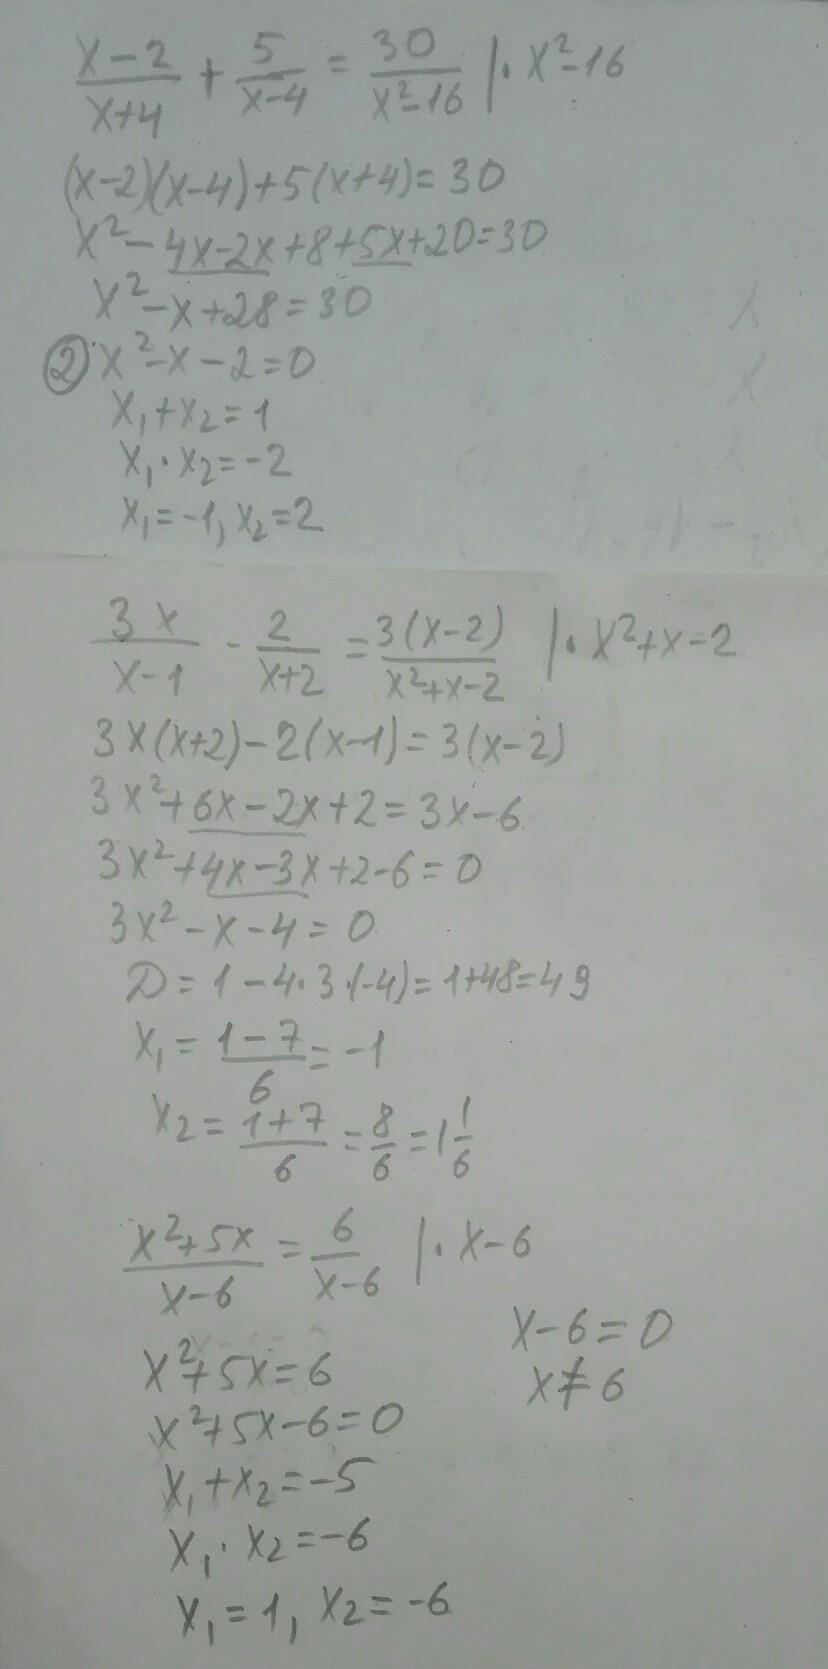 x-2/x+4 + 5/x-4 = 30/x²-16 |· x²-16
(x-2)(x-4)+5(x+4)=30
x²-4x-2x+8+5x+20=30
x²-x+28=30
② x²-x-2=0
x₁+x₂=1
x₁·x₂=-2
x₁=-1, x₂=2
3x/x-1 - 2/x+2 = 3(x-2)/x²+x-2 |· x²+x-2
3x(x+2)-2(x-1)=3(x-2)
3x²+6x-2x+2=3x-6
3x²+4x-3x+2-6=0
3x²-x-4=0
D=1-4·3·(-4)=1+48=49
x₁=1-7/6=-1
x₂=1+7/6=8/6=1 1/6
x²+5x/x-6 = 6/x-6 |· x-6
x-6=0
x≠6
x²+5x=6
x²+5x-6=0
x₁+x₂=-5
x₁·x₂=-6
x₁=1, x₂=-6